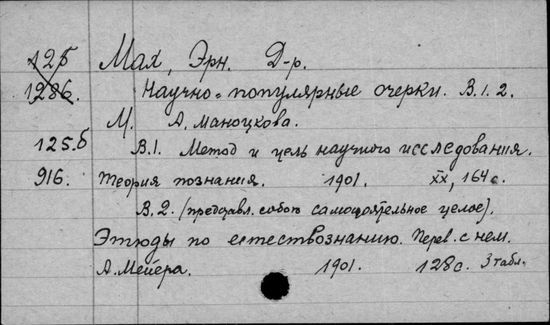 125 Мах, Эрн. Д-р.
1286. Научно-популярные очерки. В. 1. 2.
М. А. Маноцкова.
125.б В. 1. Метод и цель научного исследования.
916. Теория познания. 1901. XX, 164 с.
В. 2. (представл. собою самостоятельное целое).
Этюды по естествознанию. Перев. с нем.
А. Мейера. 1901. 128 с. 3 табл.